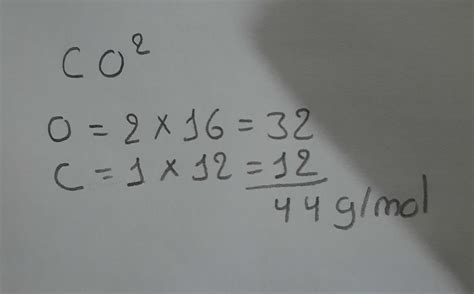 CO²
O = 2 × 16 = 32
C = 1 × 12 = 12
44 g/mol